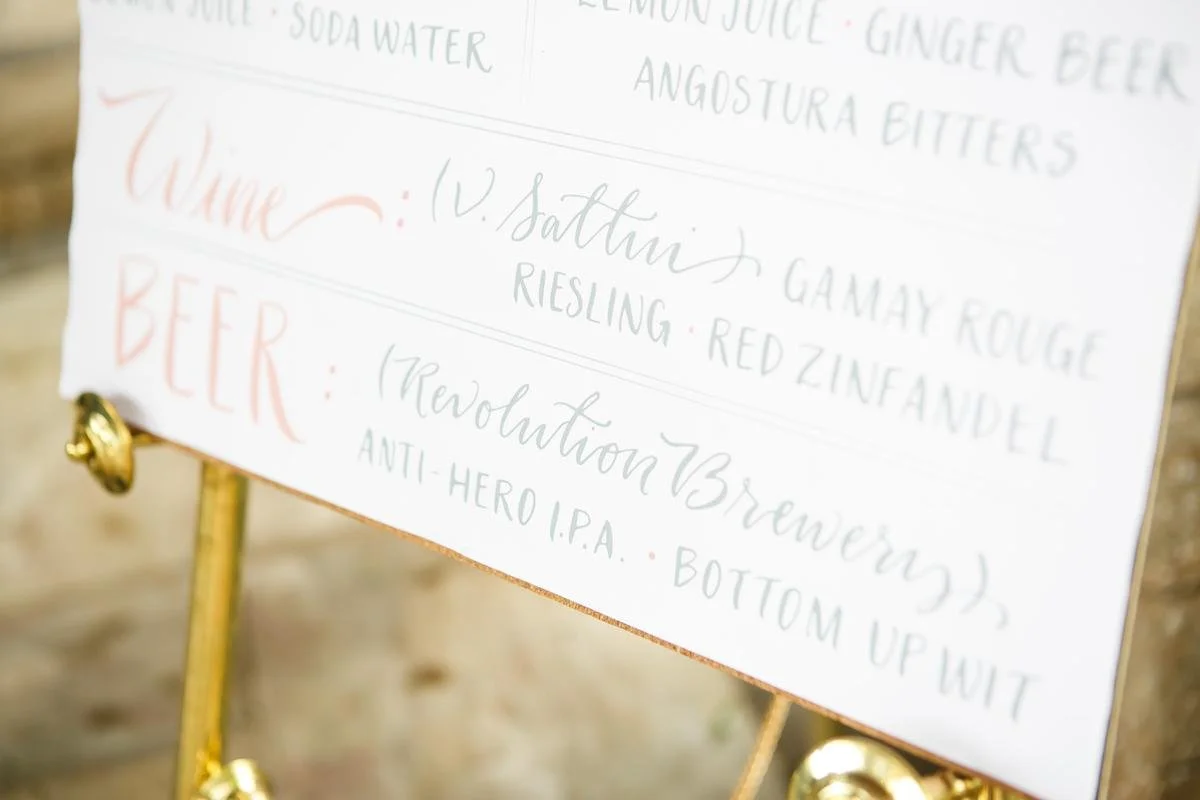 LEMON JUICE · SODA WATER
LEMON JUICE · GINGER BEER
ANGOSTURA BITTERS
Wine : (V. Sattui) GAMAY ROUGE
RIESLING · RED ZINFANDEL
BEER : (Revolution Brewery),
ANTI-HERO I.P.A. · BOTTOM UP WIT